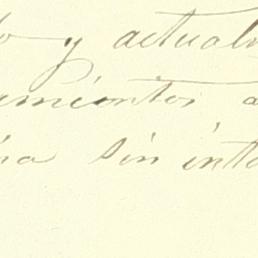 o y actual
amientos a
na sin inte